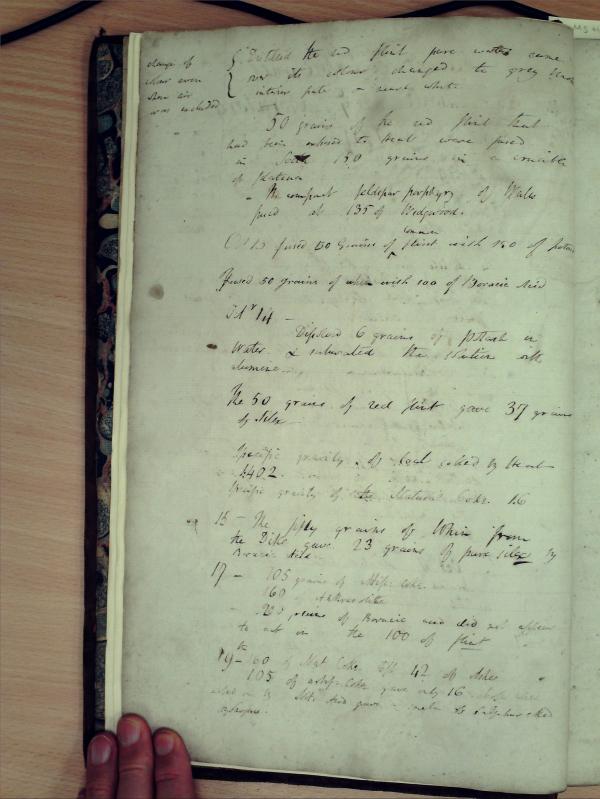 change of
colour even
when air
was excluded
the red flint pure water came
over its colour changed to grey
interior pale or near white
50 grains of the red flint that
had been exposed to Heat were fused
in 150 grains in a crucible
of platina
The compact feldspar porphyry of Wales
fused at 135 of Wedgwood.
fused 50 Grains of common flint with 150 of potash
Fused 50 grains of whin with 100 of Boracic Acid
14 —
Dissolved 6 grains of potash in
Water & saturated the solution with
alumine
The 50 grains of red flint gave 37 grains
of silex
Specific gravity of Coal coked by Heat
1.402
Specific gravity of the Natural Coke 1.6
15 — The fifty grains of Whin from
the Dike gave 23 grains of pure silex by
Boracic Acid
17 — 105 grains of Coke
160 of Anthracolite
200 grains of Boracic acid did not appear
to act on the 100 of flint
19 — 160 of Nat Coke left 42 of Ashes
105 of Coke gave only 16
acted on by Acid gave